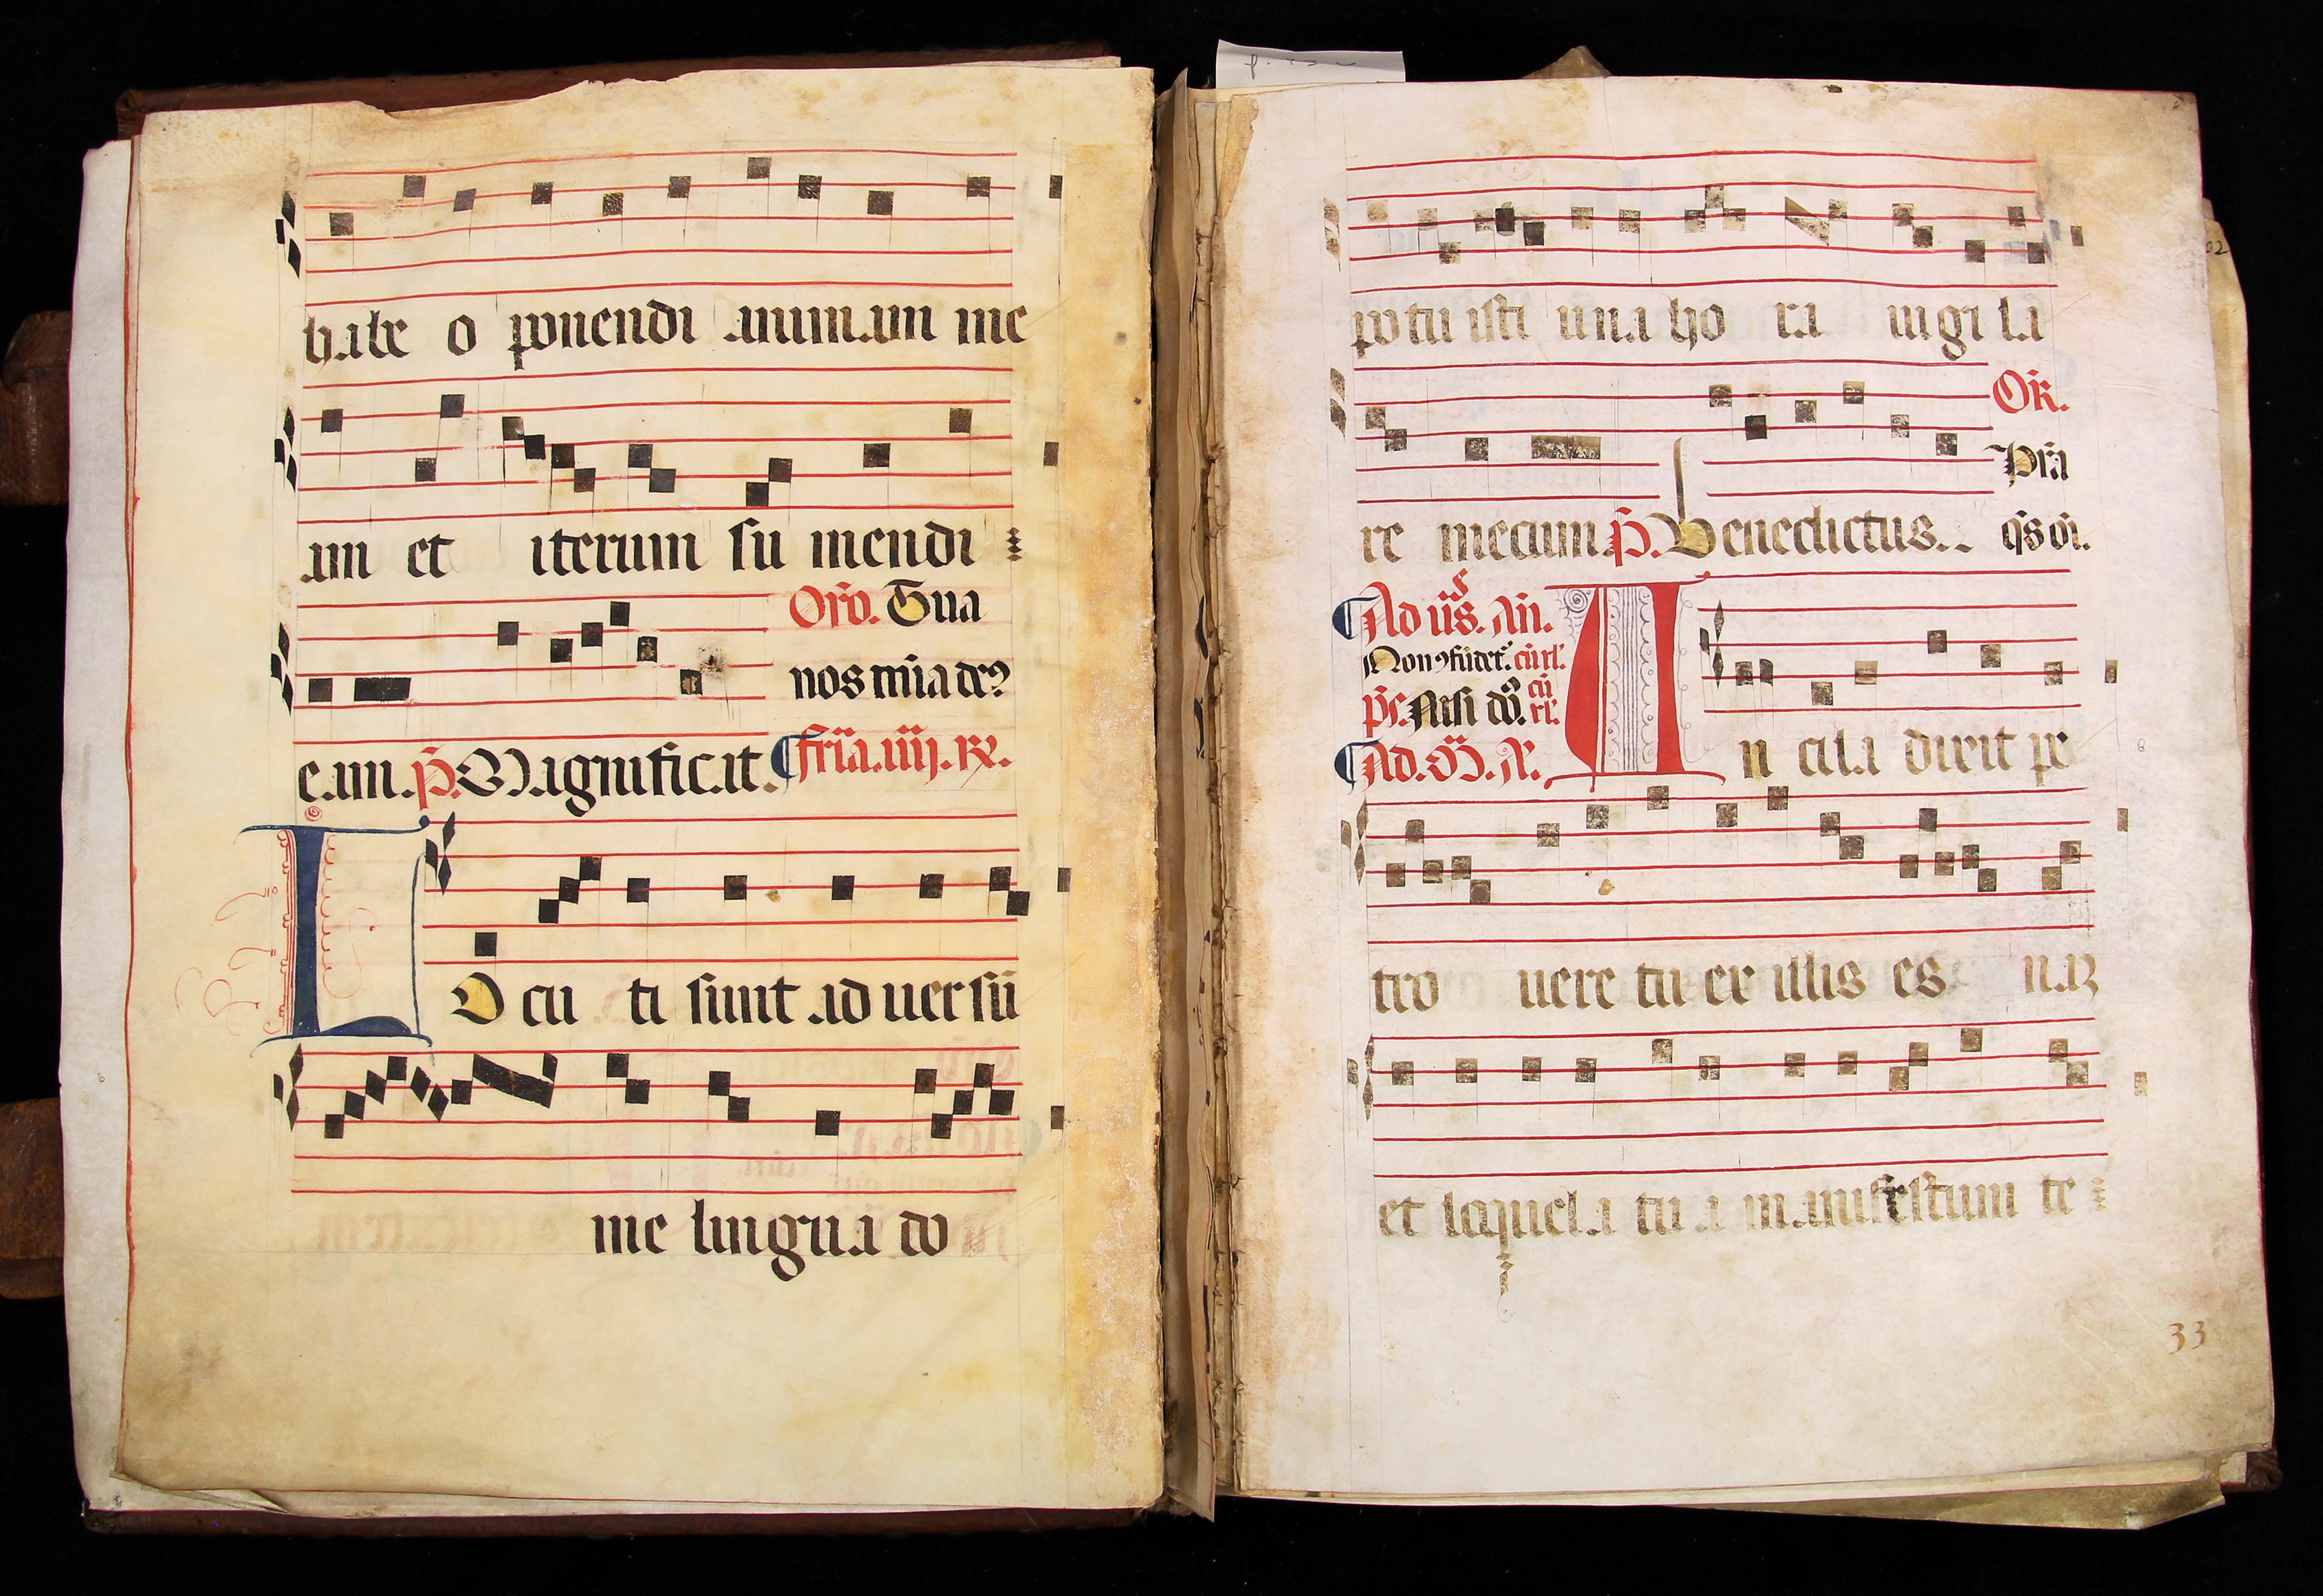 habe o ponendi animam me
am et iterum su mendi
Oro. Tua
nos mia de?
e am. p. Magnificat. fria. iiij. R.
L O cu ti sunt ad uer sū
me lingua do
po tu isti una ho ra uigi la
OR.
Pra
re mecum p. Benedictus.. qs oi.
Ad us. An.
Non 9fūdet. cū rl.
ps. Nisi dō. cū rl.
Ad. M. A.
A n cila dixit pe
tro uere tu ex illis es naz
et loquela tu a manifestum te
33